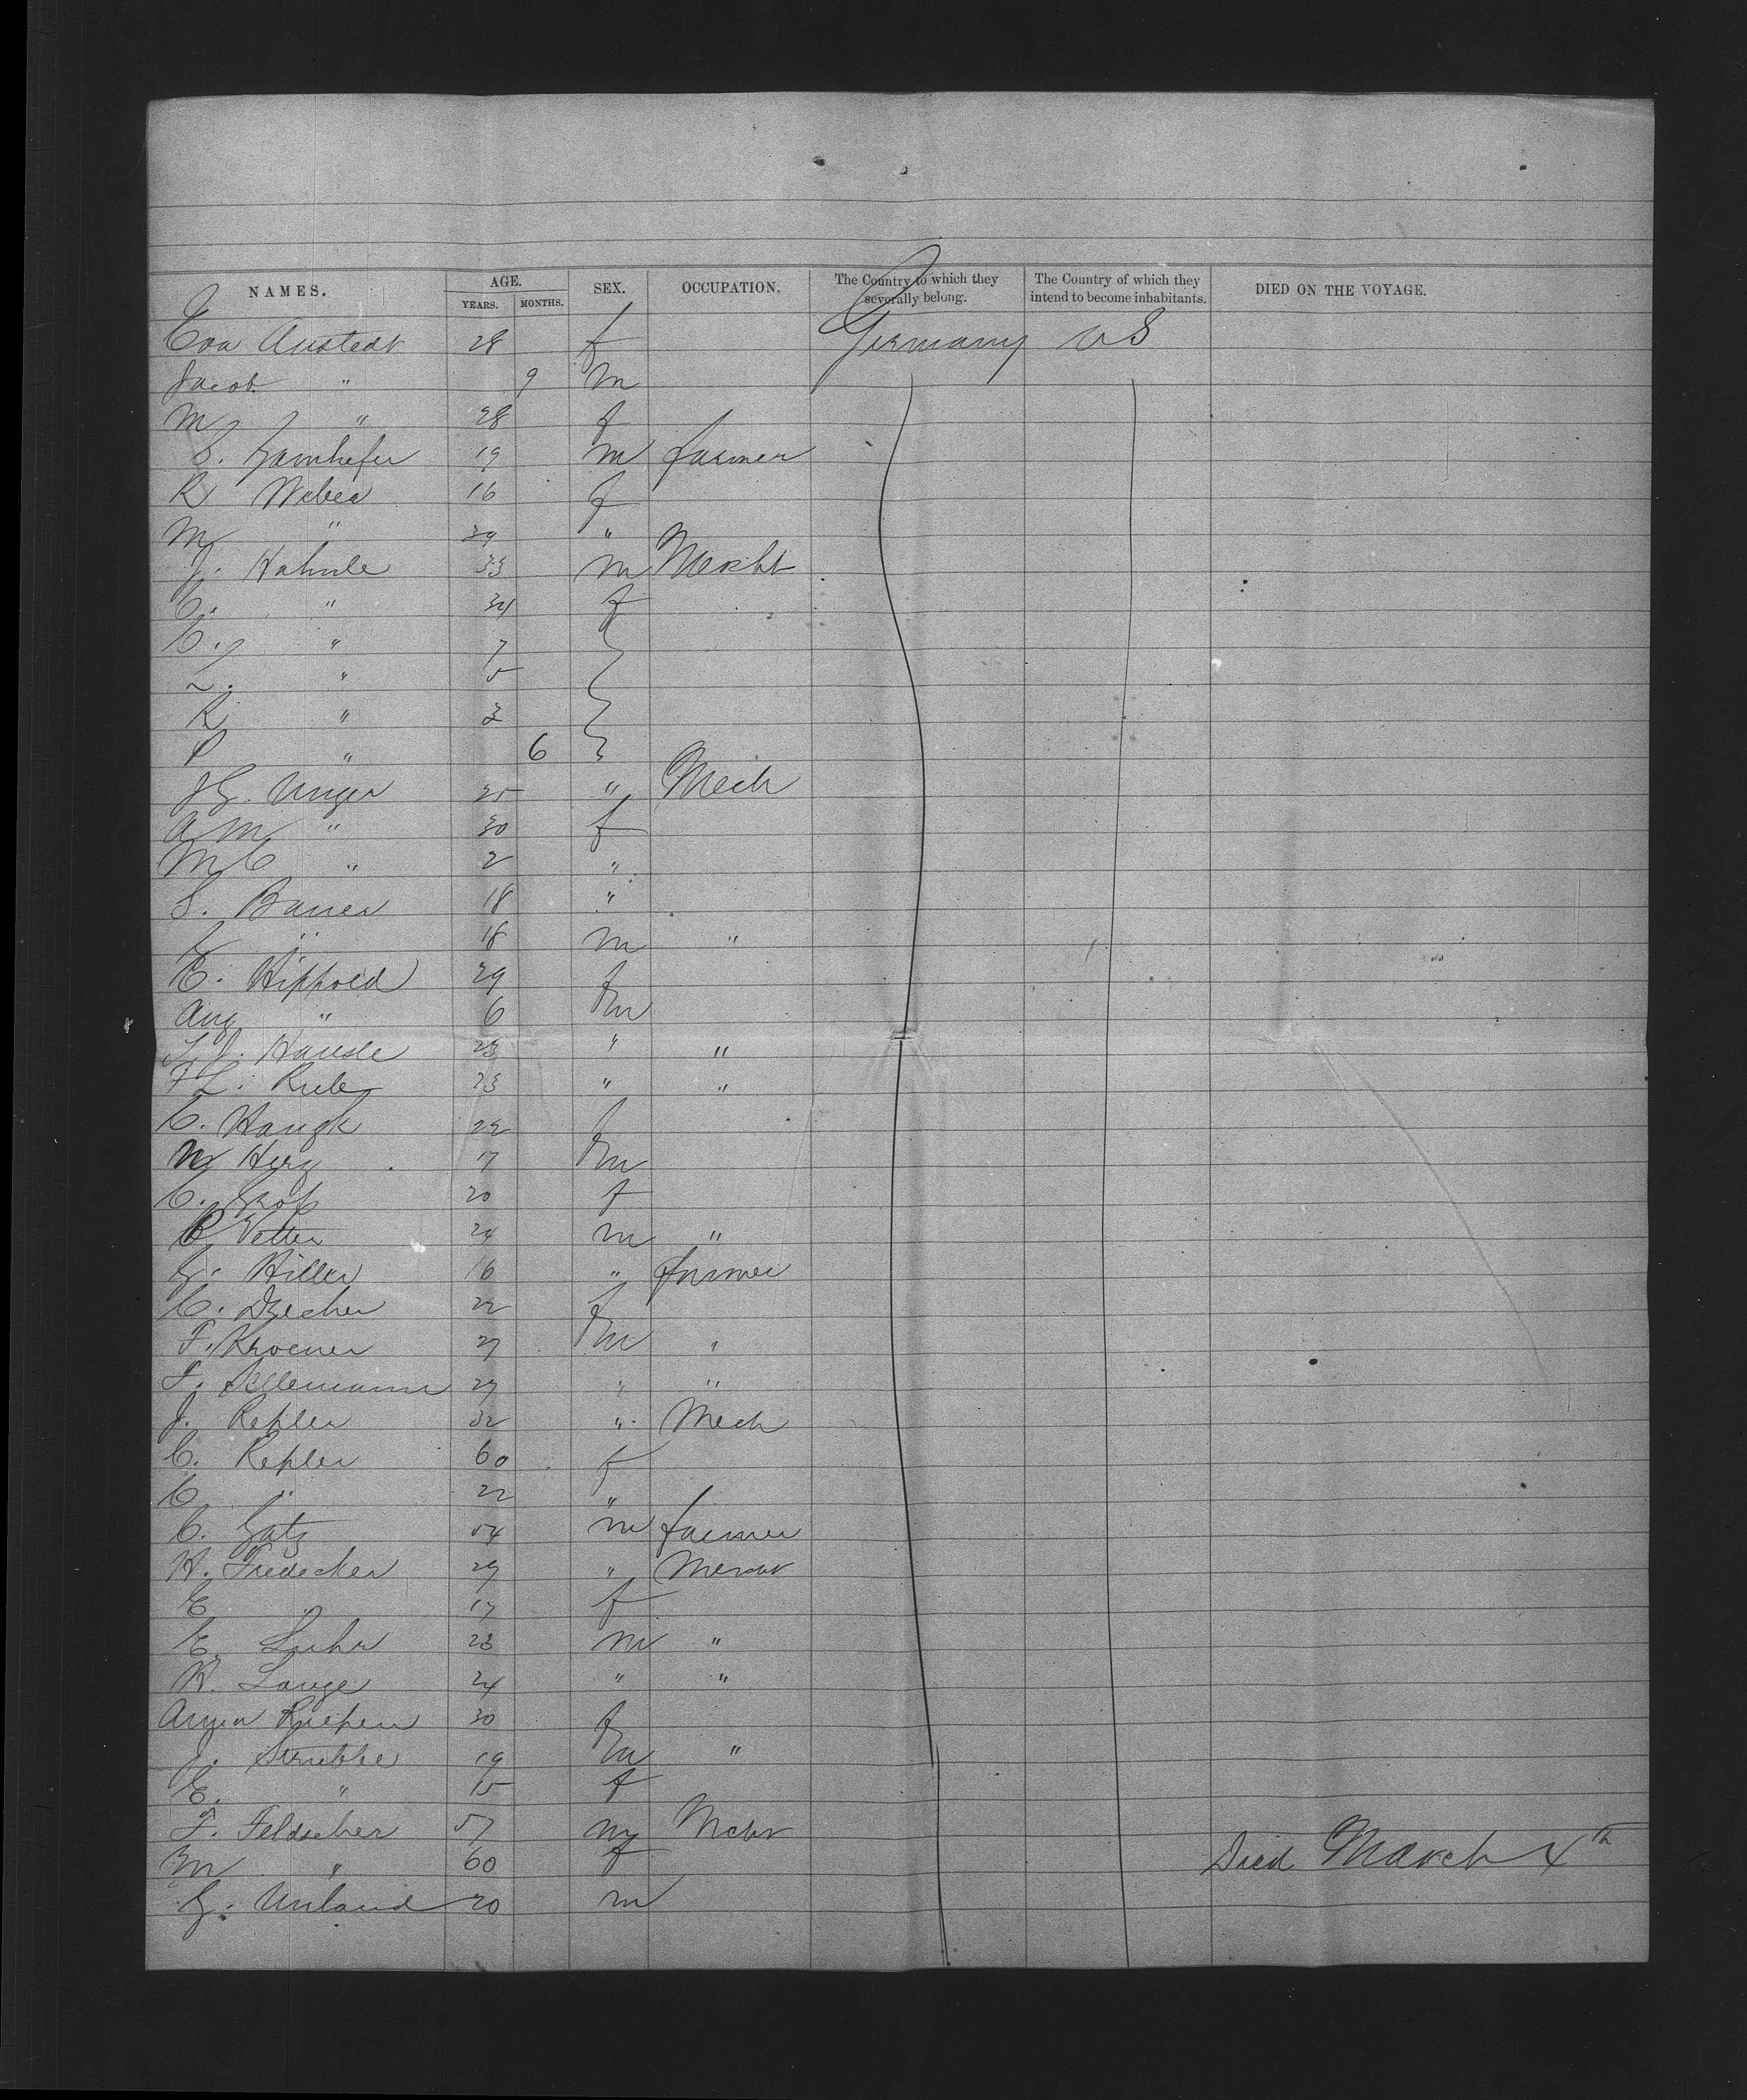 NAMES. AGE. YEARS. MONTHS. SEX. OCCUPATION. The Country to which they severally belong. The Country of which they intend to become inhabitants. DIED ON THE VOYAGE.
Eva Austedt 28 f Germany US
Jacob " 9 m
M " 28 f
S. 19 m farmer
R Weber 16 f
M " 39 "
J. Hahnle 33 m Mercht
C. " 34 f
C. " 7
L. " 5
R " 3
P " 6
J G. Unger 25 " Mech
A M " 30 f
M C " 2 "
S. Bauer 18 "
" 18 m "
C. Hippold 29 f
Aug " 6 m
J. Hausle 23 " "
F L. Rube 23 " "
C. Haugk 22 f
M Herz 17 m
C. Grob 20 f
R Vetter 24 m "
G. Hiller 16 " farmer
C. 22 f
F. Kroener 27 m "
F. Allemann 29 " "
J. Kepler 32 " Mech
C. Kepler 60 f
C " 22 "
C. Gatz 54 m farmer
H. Tiedecker 29 " Mercht
E " 17 f
E. Luhr 23 m "
H. Lange 24 " "
Riepen 30 f
J. Strubbe 19 m "
E. " 15 f
F. Feldscher 57 m Mcht
M " 60 f Died March 4th
G. Unland 20 m